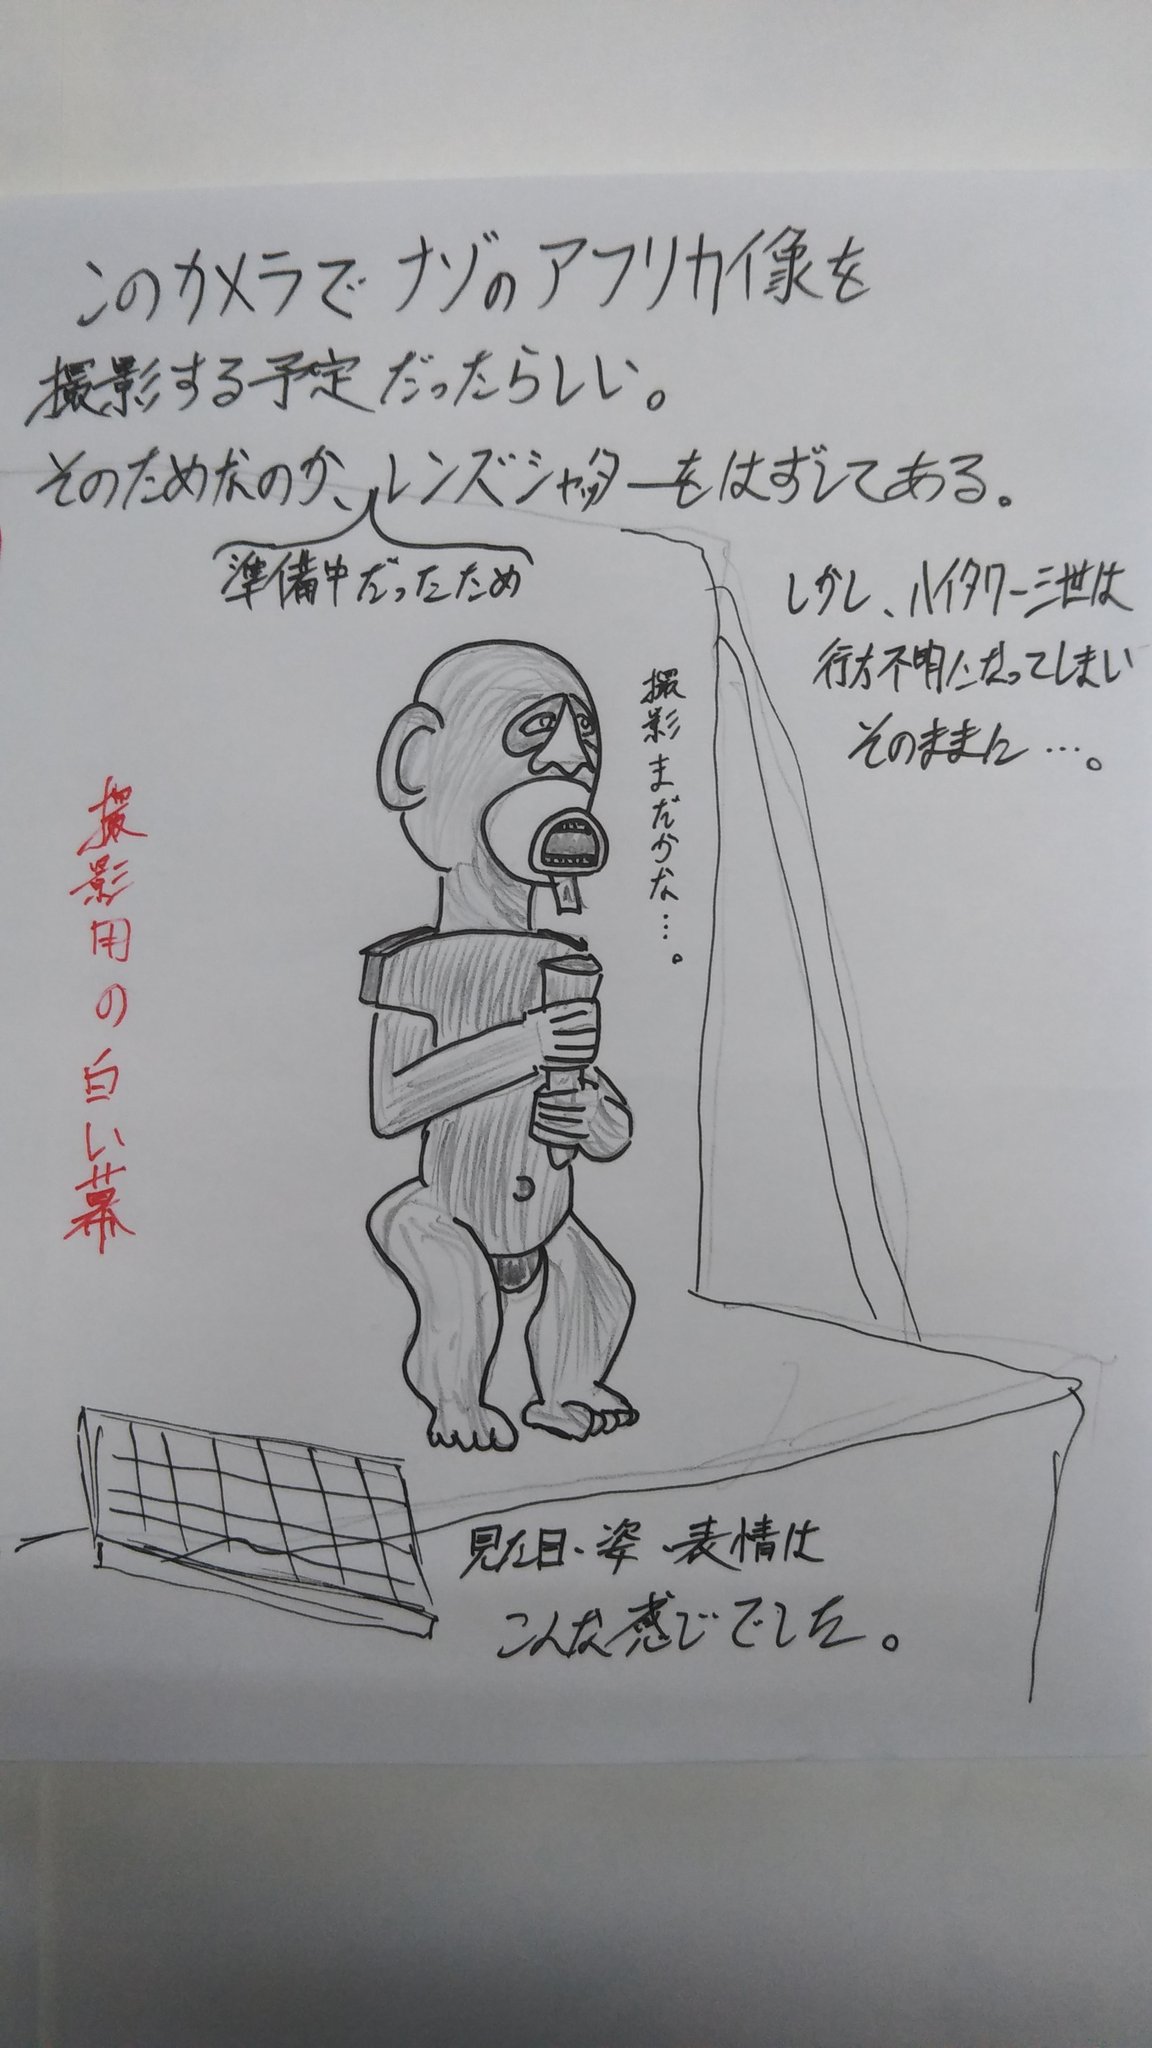 このカメラでナゾのアフリカ像を
撮影する予定だったらしい。
そのためなのか、レンズシャッターをはずしてある。
準備中だったため
しかし、ハイタワー三世は
行方不明になってしまい
そのままに…。
撮影まだかな…。
撮影用の白い幕
見た目・姿・表情は
こんな感じでした。